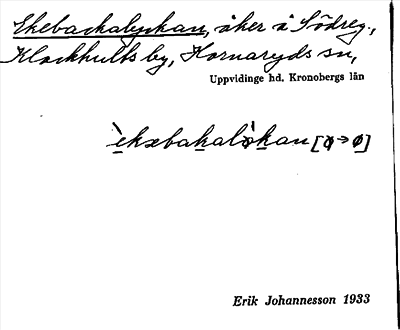 Ekebackalyckan, åker å Södreg.,
Klockhults by, Hornaryds sn,
Uppvidinge hd, Kronobergs län
Erik Johannesson 1933